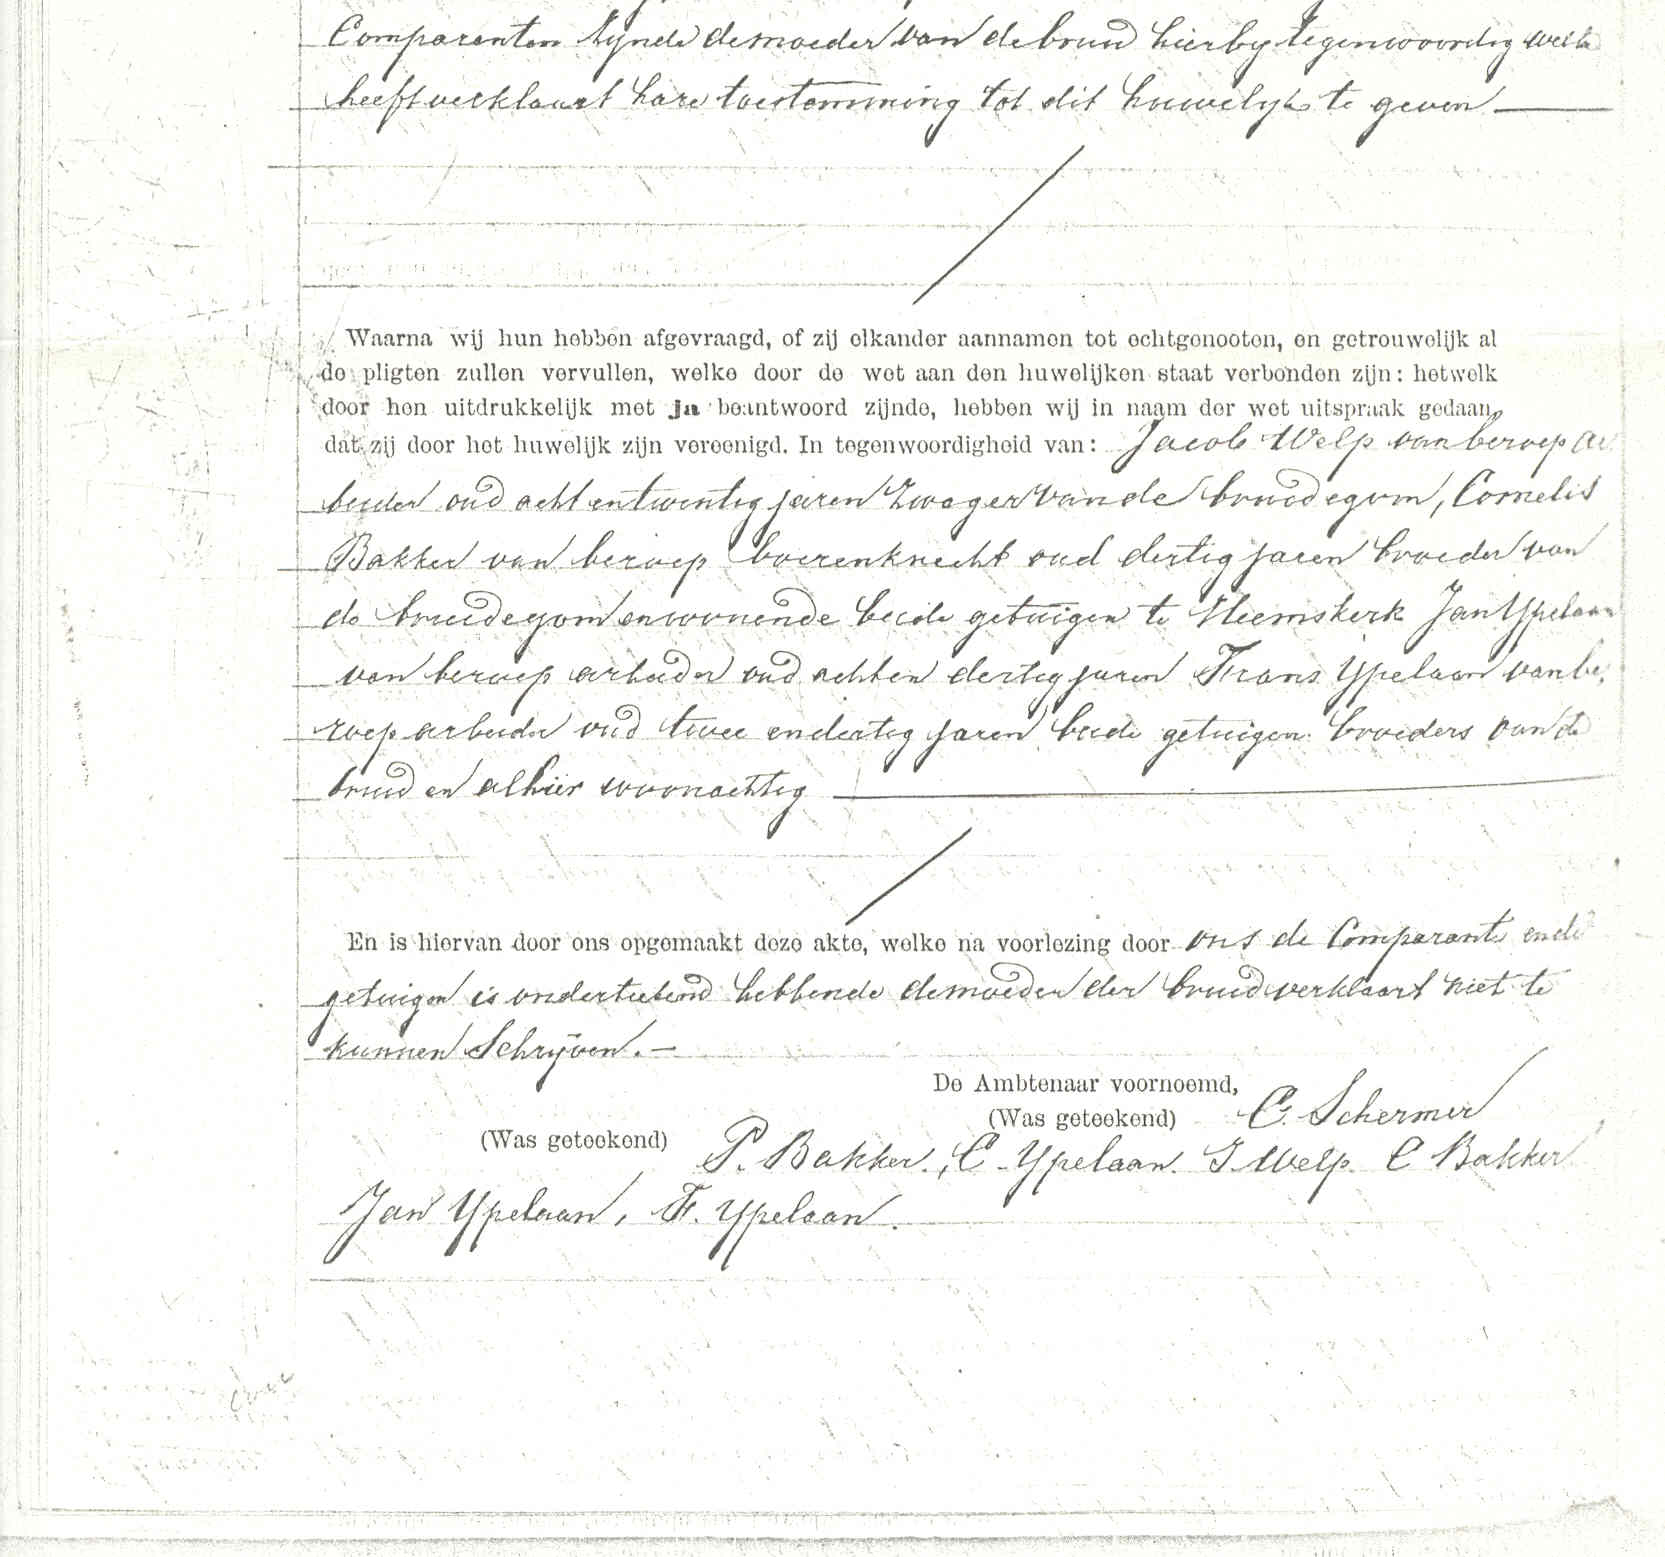 Comparanten zynde de moeder van de bruid hierby tegenwoordig welke
heeft verklaart hare toestemming tot dit huwelyk te geven
Waarna wij hun hebben afgevraagd, of zij elkander aannamen tot echtgenooten, en getrouwelijk al
de pligten zullen vervullen, welke door de wet aan den huwelijken staat verbonden zijn: hetwelk
door hen uitdrukkelijk met ja beantwoord zijnde, hebben wij in naam der wet uitspraak gedaan,
dat zij door het huwelijk zijn vereenigd. In tegenwoordigheid van: Jacob Welp van beroep ar
beider oud acht en twintig jaren zwager van de bruidegom, Cornelis
Bakker van beroep boerenknecht oud dertig jaren broeder van
de bruidegom en wonende beide getuigen te Heemskerk Jan Ypelaan
van beroep arbeider oud acht en dertig jaren Frans Ypelaan van be,
roep arbeider oud twee en dertig jaren beide getuigen broeders van de
bruid en alhier woonachtig
En is hiervan door ons opgemaakt deze akte, welke na voorlezing door ons de Comparante en de
getuigen is onderteekend hebbende de moeder der bruid verklaart niet te
kunnen Schryven.-
De Ambtenaar voornoemd,
(Was geteekend) C. Schermer
(Was geteekend) P. Bakker., C Ypelaan. J Welp. C Bakker
Jan Ypelaan, F. Ypelaan.